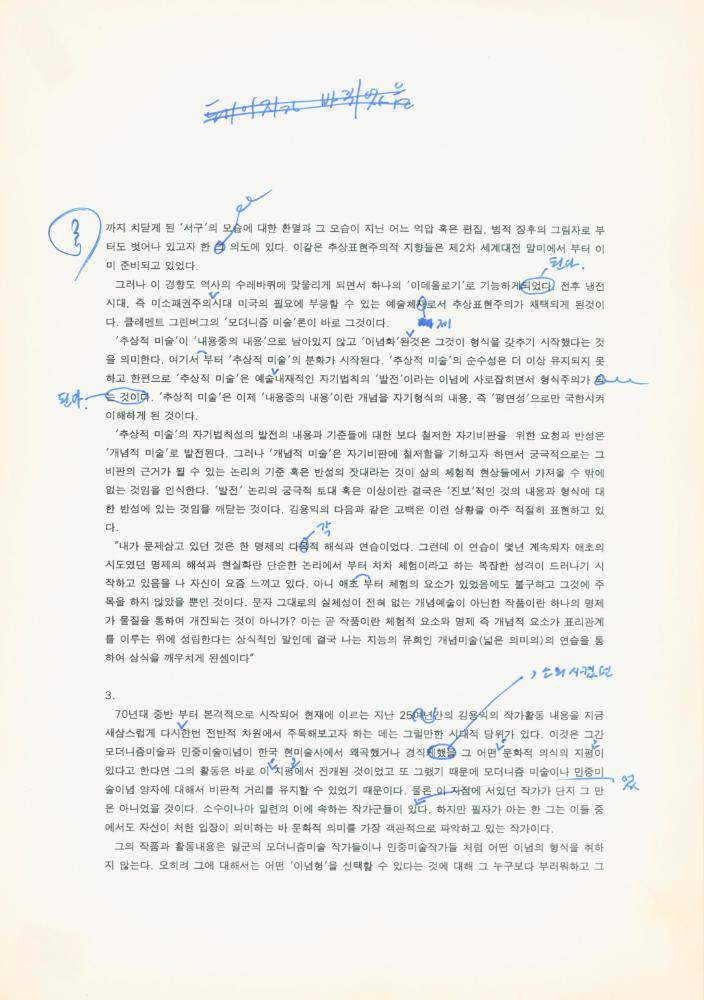 페이지가 바뀌었음
까지 치닫게 된 '서구'의 모습에 대한 환멸과 그 모습이 지닌 어느 억압 혹은 편집, 병적 징후의 그림자로 부
터도 벗어나 있고자 한 그 의도에 있다. 이같은 추상표현주의적 지향들은 제2차 세계대전 말미에서 부터 이
미 준비되고 있었다.
된다.
그러나 이 경향도 역사의 수레바퀴에 맞물리게 되면서 하나의 '이데올로기'로 기능하게되었다. 전후 냉전
시대, 즉 미소패권주의시대 미국의 필요에 부응할 수 있는 예술체재로서 추상표현주의가 채택되게 된것이
다. 클레멘트 그린버그의 '모더니즘 미술'론이 바로 그것이다.
제
'추상적 미술'이 '내용중의 내용'으로 남아있지 않고 '이념화'된것은 그것이 형식을 갖추기 시작했다는 것
을 의미한다. 여기서 부터 '추상적 미술'의 분화가 시작된다. '추상적 미술'의 순수성은 더 이상 유지되지 못
하고 한편으로 '추상적 미술'은 예술내재적인 자기법칙의 '발전'이라는 이념에 사로잡히면서 형식주의가
된다.
는 것이다. '추상적 미술'은 이제 '내용중의 내용'이란 개념을 자기형식의 내용, 즉 '평면성'으로만 국한시켜
이해하게 된 것이다.
'추상적 미술'의 자기법칙성의 발전의 내용과 기준들에 대한 보다 철저한 자기비판을 위한 요청과 반성은
'개념적 미술'로 발전된다. 그러나 '개념적 미술'은 자기비판에 철저함을 기하고자 하면서 궁극적으로는 그
비판의 근거가 될 수 있는 논리의 기준 혹은 반성의 잣대라는 것이 삶의 체험적 현상들에서 가져올 수 밖에
없는 것임을 인식한다. '발전' 논리의 궁극적 토대 혹은 이상이란 결국은 '진보'적인 것의 내용과 형식에 대
한 반성에 있는 것임을 깨닫는 것이다. 김용익의 다음과 같은 고백은 이런 상황을 아주 적절히 표현하고 있
다.
각
"내가 문제삼고 있던 것은 한 명제의 다목적 해석과 연습이었다. 그런데 이 연습이 몇년 계속되자 애초의
시도였던 명제의 해석과 현실화란 단순한 논리에서 부터 차차 체험이라고 하는 복잡한 성격이 드러나기 시
작하고 있음을 나 자신이 요즘 느끼고 있다. 아니 애초 부터 체험의 요소가 있었음에도 불구하고 그것에 주
목을 하지 않았을 뿐인 것이다. 문자 그대로의 실체성이 전혀 없는 개념예술이 아닌한 작품이란 하나의 명제
가 물질을 통하여 개진되는 것이 아니가? 이는 곧 작품이란 체험적 요소와 명제 즉 개념적 요소가 표리관계
를 이루는 위에 성립한다는 상식적인 말인데 결국 나는 지능의 유희인 개념미술(넓은 의미의)의 연습을 통
하여 상식을 깨우치게 된셈이다"
, 소외시켰던
3.
70년대 중반 부터 본격적으로 시작되어 현재에 이르는 지난 25여년간의 김용익의 작가활동 내용을 지금
새삼스럽게 다시한번 전반적 차원에서 주목해보고자 하는 데는 그럴만한 시대적 당위가 있다. 이것은 그간
모더니즘미술과 민중미술이념이 한국 현미술사에서 왜곡했거나 경직케했을 그 어떤 문화적 의식의 지평이
있다고 한다면 그의 활동은 바로 이 지평에서 전개된 것이었고 또 그랬기 때문에 모더니즘 미술이나 민중미
술이념 양자에 대해서 비판적 거리를 유지할 수 있었기 때문이다. 물론 이 지점에 서있던 작가가 단지 그 만
은 아니었을 것이다. 소수이나마 일련의 이에 속하는 작가군들이 있다. 하지만 필자가 아는 한 그는 이들 중
에서도 자신이 처한 입장이 의미하는 바 문화적 의미를 가장 객관적으로 파악하고 있는 작가이다.
그의 작품과 활동내용은 일군의 모더니즘미술 작가들이나 민중미술작가들 처럼 어떤 이념의 형식을 취하
지 않는다. 오히려 그에 대해서는 어떤 '이념형'을 선택할 수 있다는 것에 대해 그 누구보다 부러워하고 그